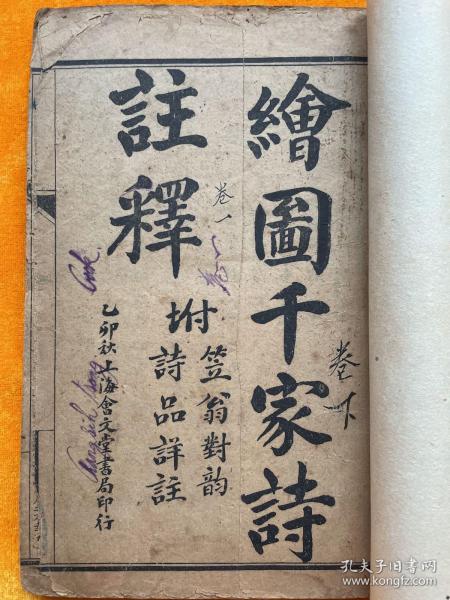 繪圖千家詩
註釋
坿
笠翁對韻
詩品詳註
乙卯秋上海會文堂書局印行
卷一
卷一
卷下
孔夫子旧书网
www.kongfz.com